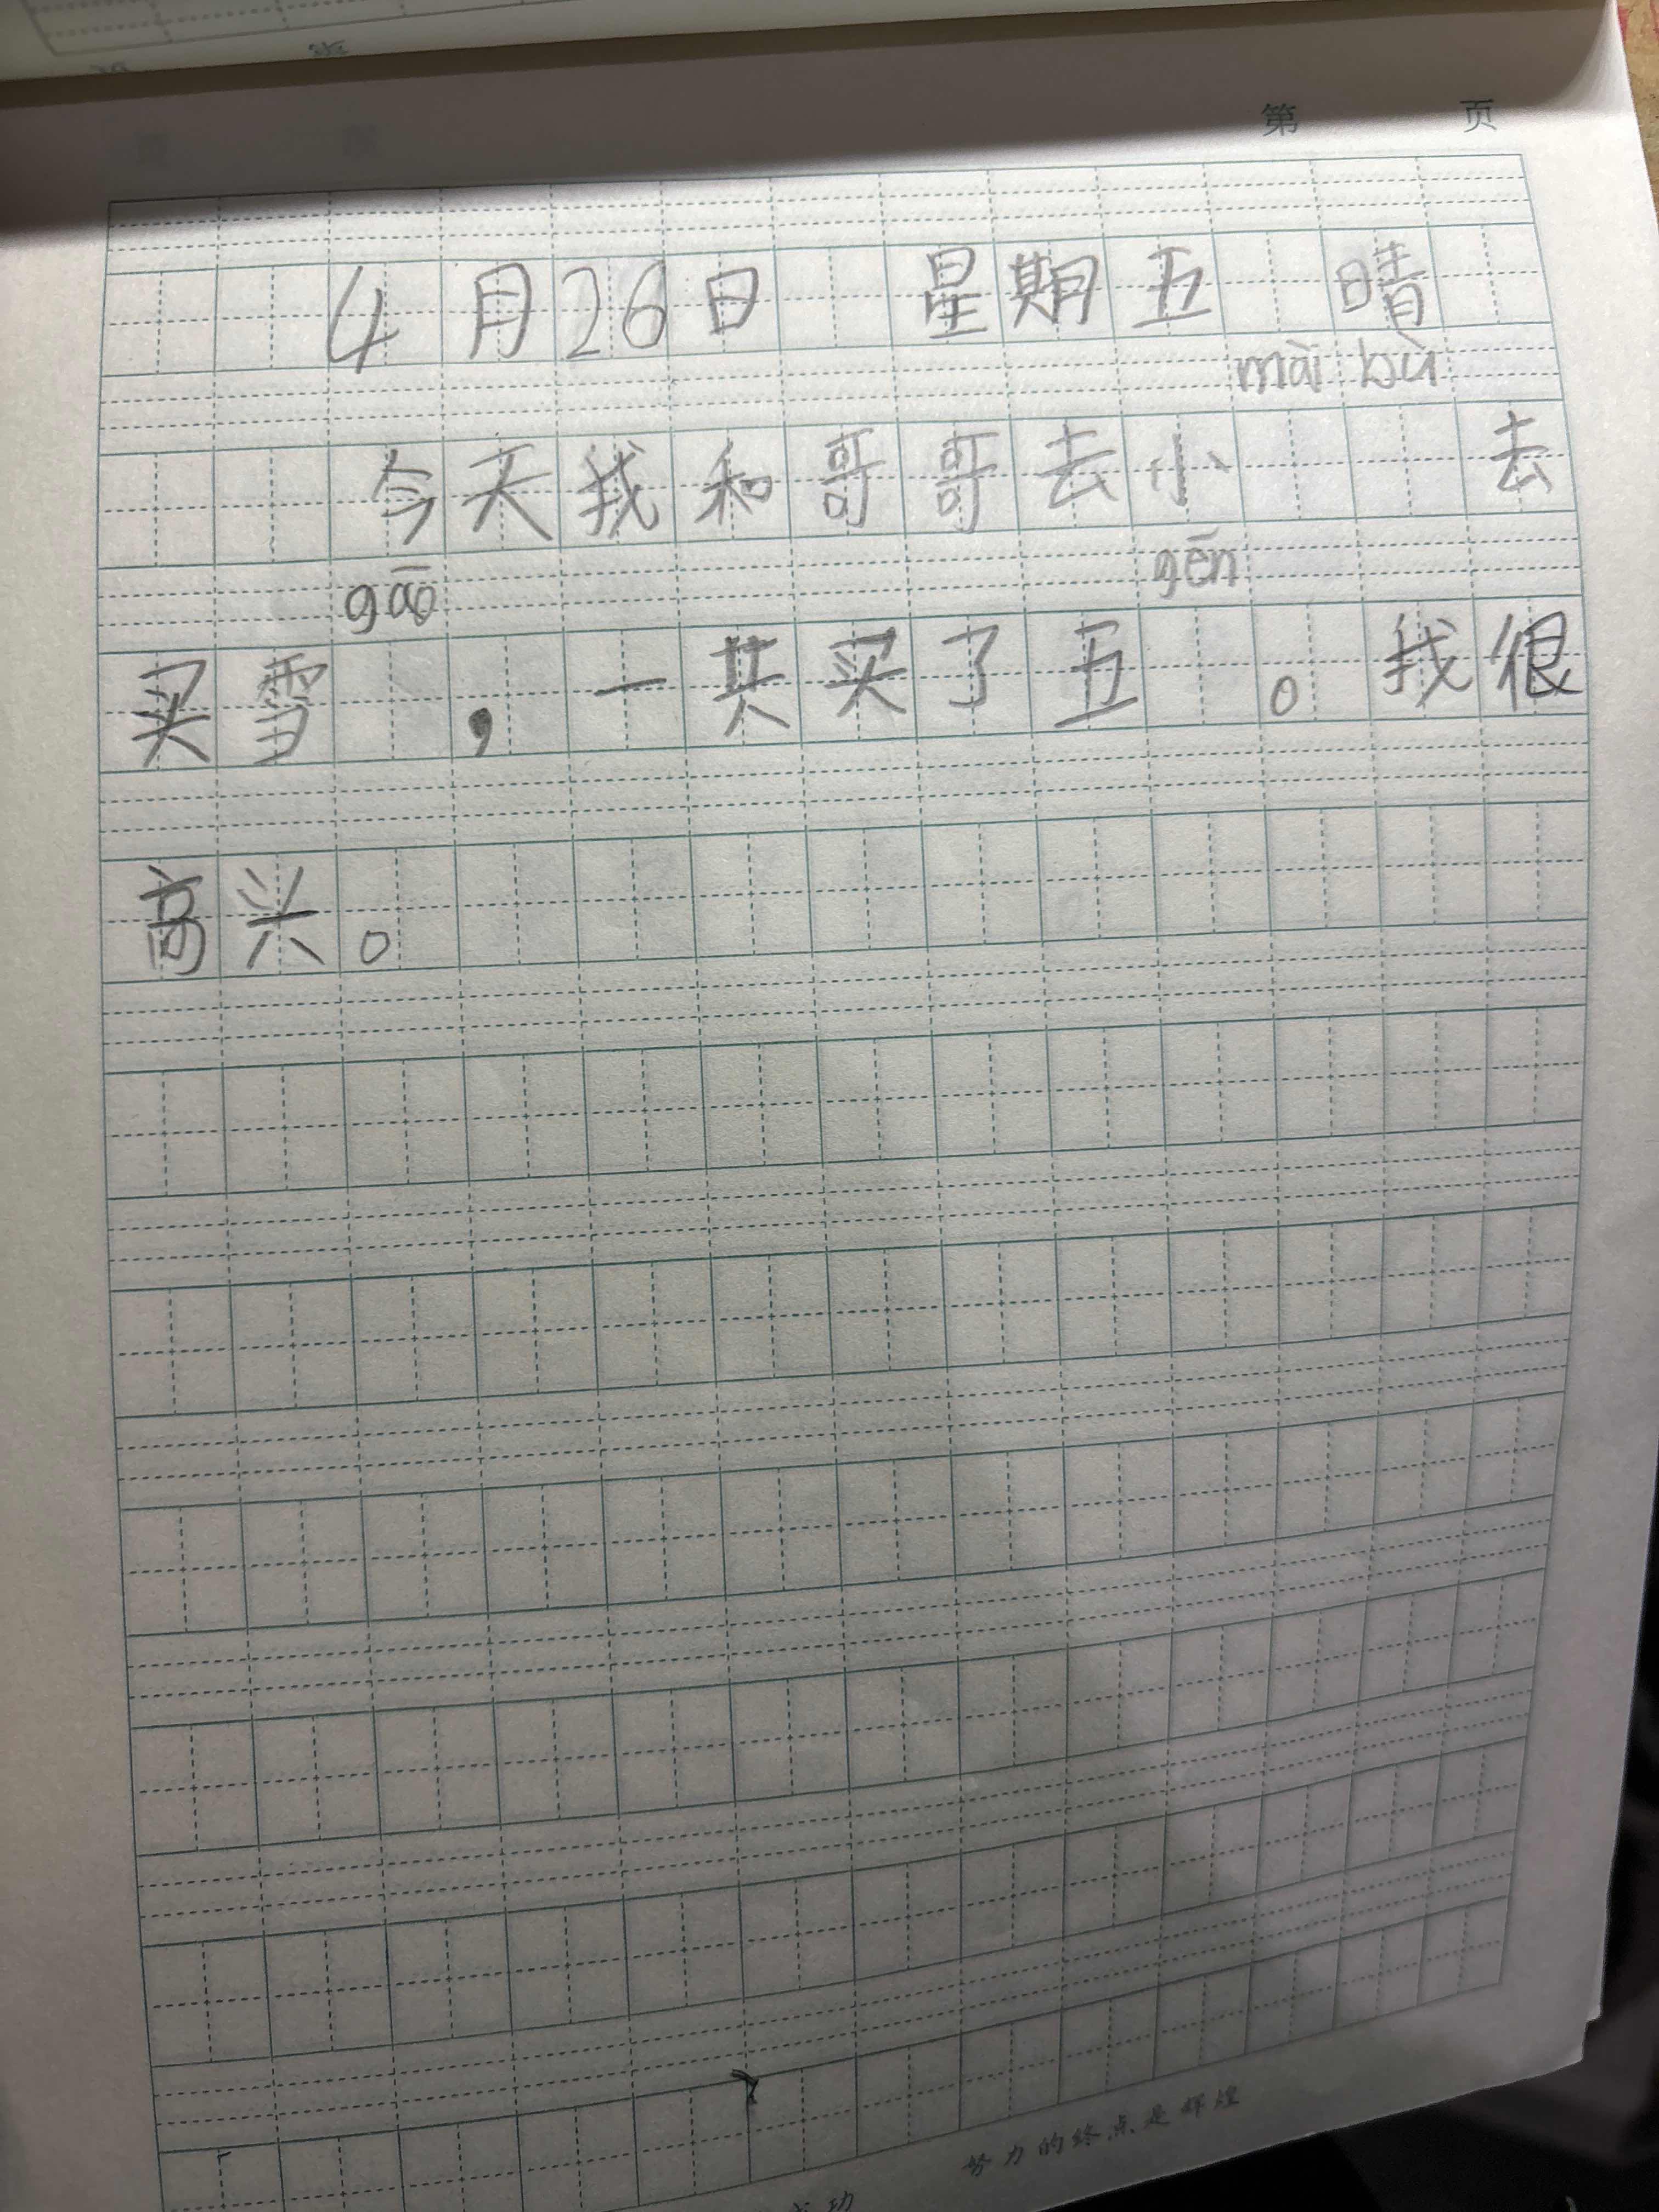 第 页
4月26日 星期五 晴
mài bù
今天我和哥哥去小 去
gāo gēn
买雪 ,一共买了五 。我很
高兴。
努力的终点是辉煌
成功